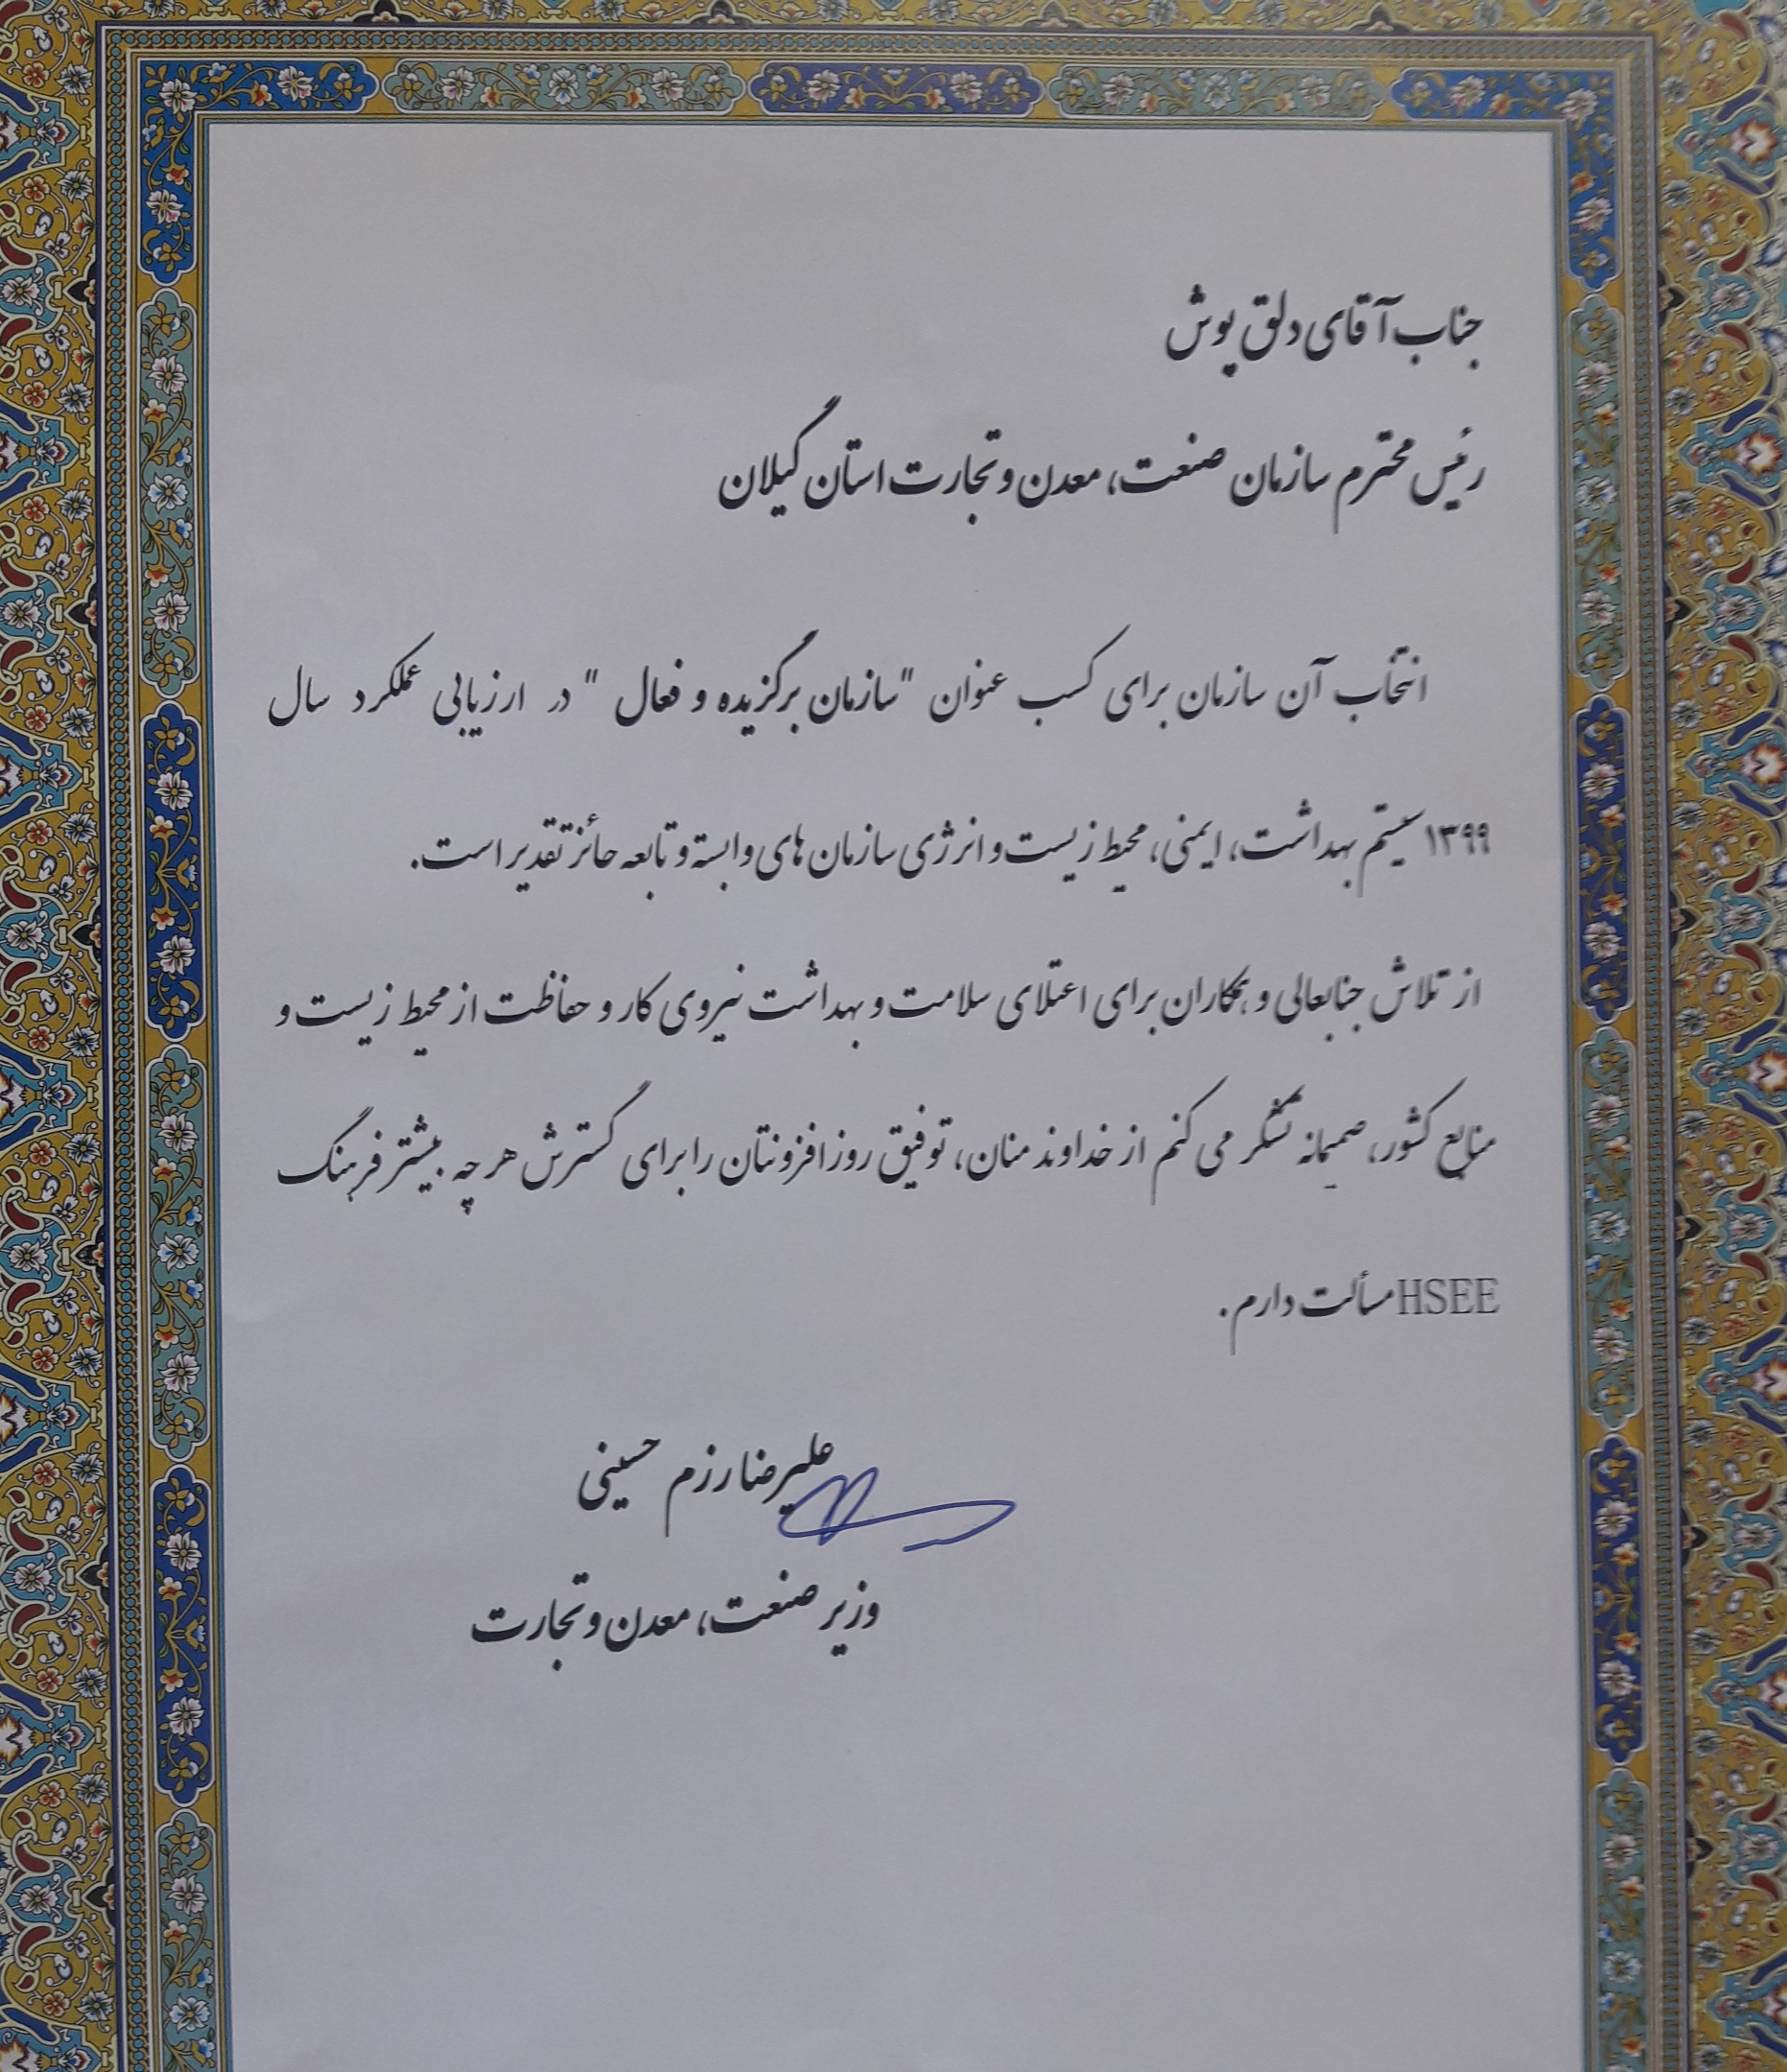 جناب آقای دلق پوش
رئیس محترم سازمان صنعت، معدن و تجارت استان گیلان
انتخاب آن سازمان برای کسب عنوان "سازمان برگزیده و فعال " در ارزیابی عملکرد سال
۱۳۹۹ سیستم بهداشت، ایمنی، محیط زیست و انرژی سازمان های وابسته و تابعه حائز تقدیر است.
از تلاش جنابعالی و همکاران برای اعتلای سلامت و بهداشت نیروی کار و حفاظت از محیط زیست و
منابع کشور، صمیمانه تشکر می کنم از خداوند منان، توفیق روزافزونتان را برای گسترش هر چه بیشتر فرهنگ
HSEE مسألت دارم.
علیرضا رزم حسینی
وزیر صنعت، معدن و تجارت